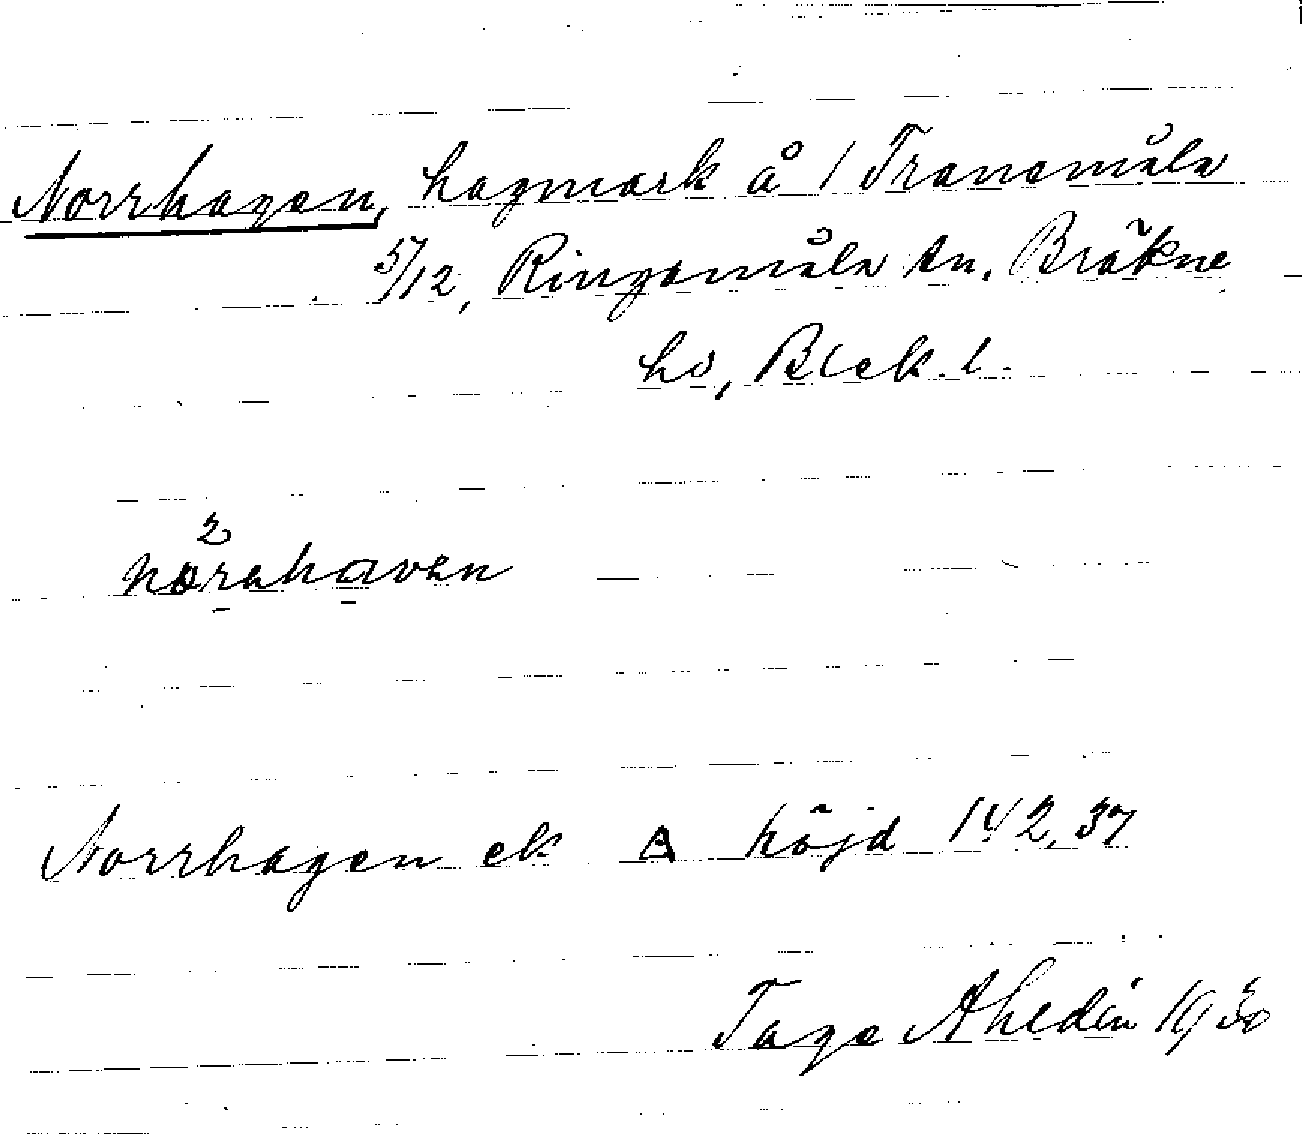 Norrhagen, hagmark å 1 Tranemåla
5/12, Ringamåla sn. Bräkne
hd, Blek. l.
2
nörahaven
Norrhagen ek △ höjd 142,37
Tage Ahldén 1930